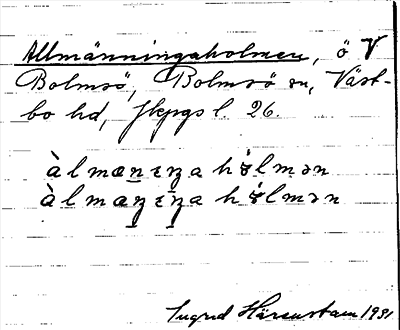 Allmänningaholmen, ö V
Bolmsö, Bolmsö sn, Väst-
bo hd, Jkpgs l. 26.
àlmæṉıŋa hɵ́lmən
àlmæŋıŋa hɵ́lmən
Ingrid 1931